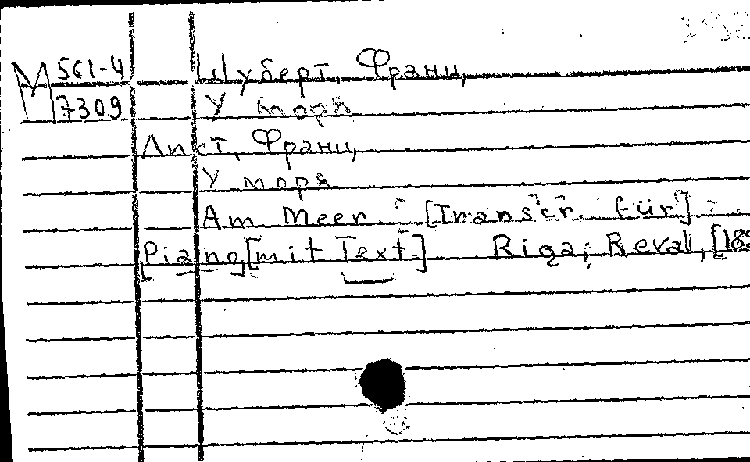 М 561-4 Шуберт, Франц
7309 У моря
Лист, Франц
У моря
Am Meer. [Transcr. für]
Piano [mit Text] Riga; Reval,